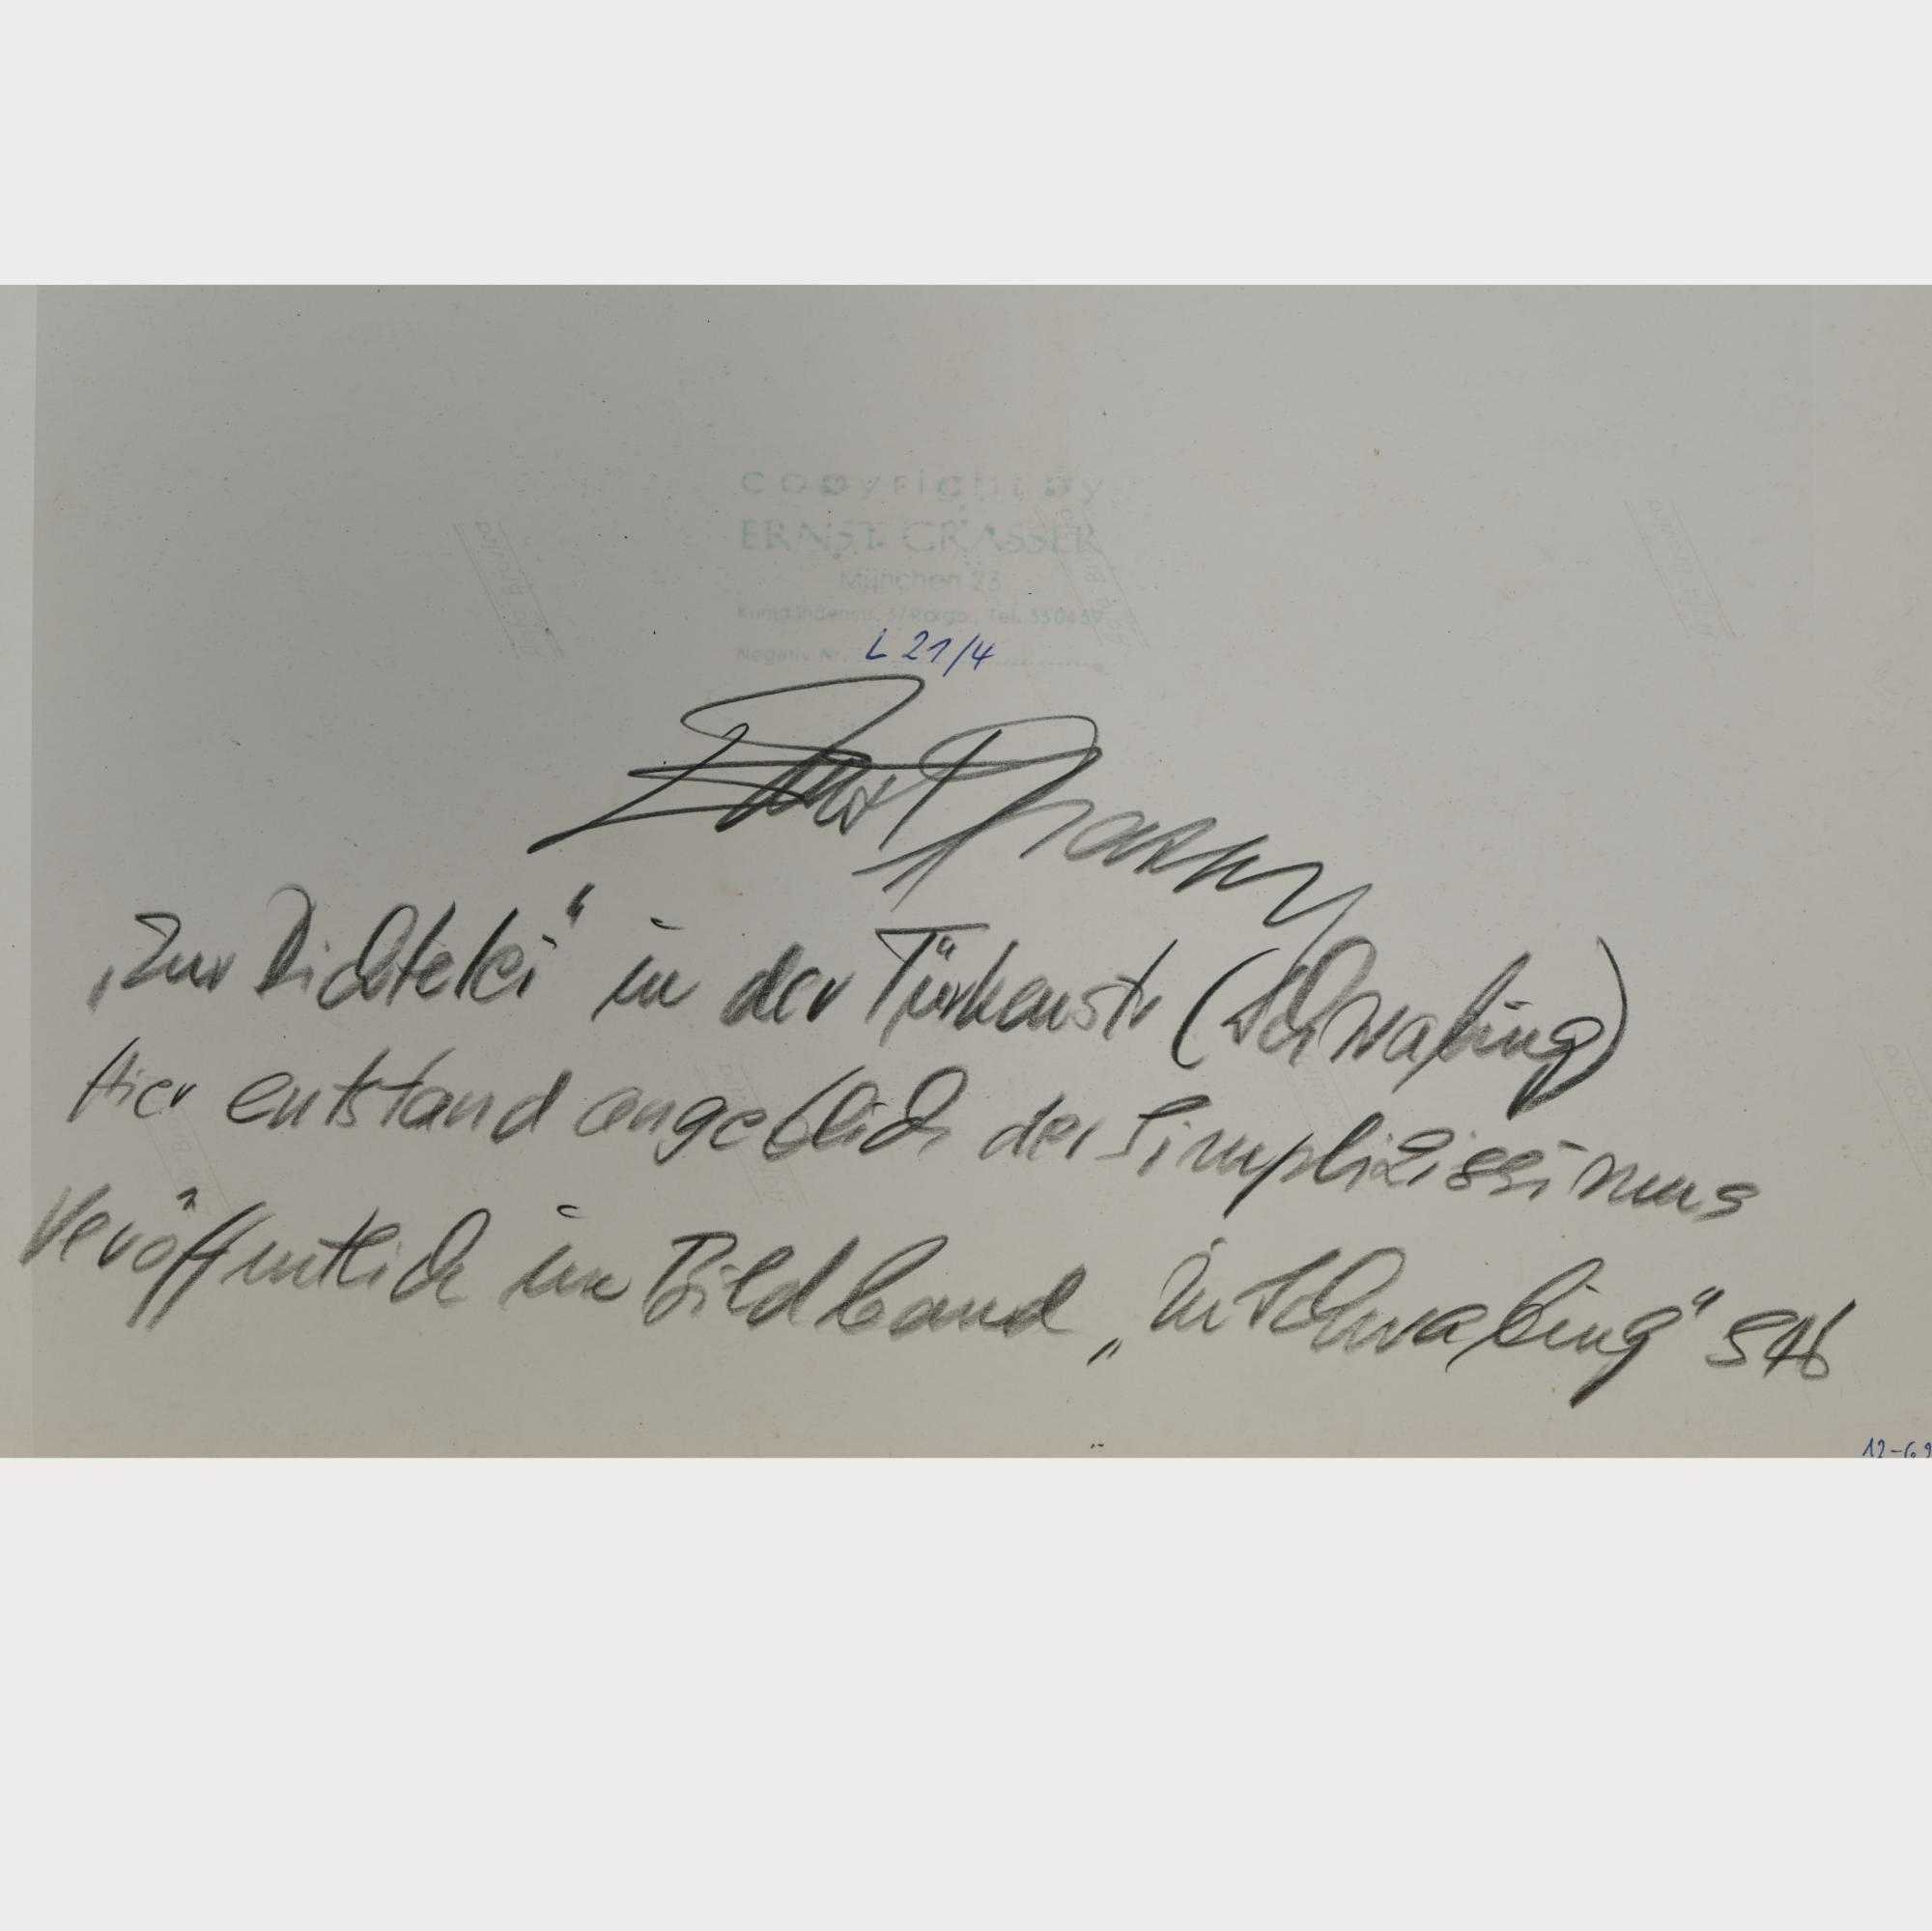 copyright by
ERNST GRASSER
München 23
Kunigundenstr. 37 Rckgb., Tel. 330459
Negativ Nr. L 21/4
Ernst Grasser
„Zur Dichtelei" in der Türkenstr (Schwabing)
Hier entstand angeblich der Simplizissimus
Veröffentlich im Bildband „In Schwabing" S
12-69